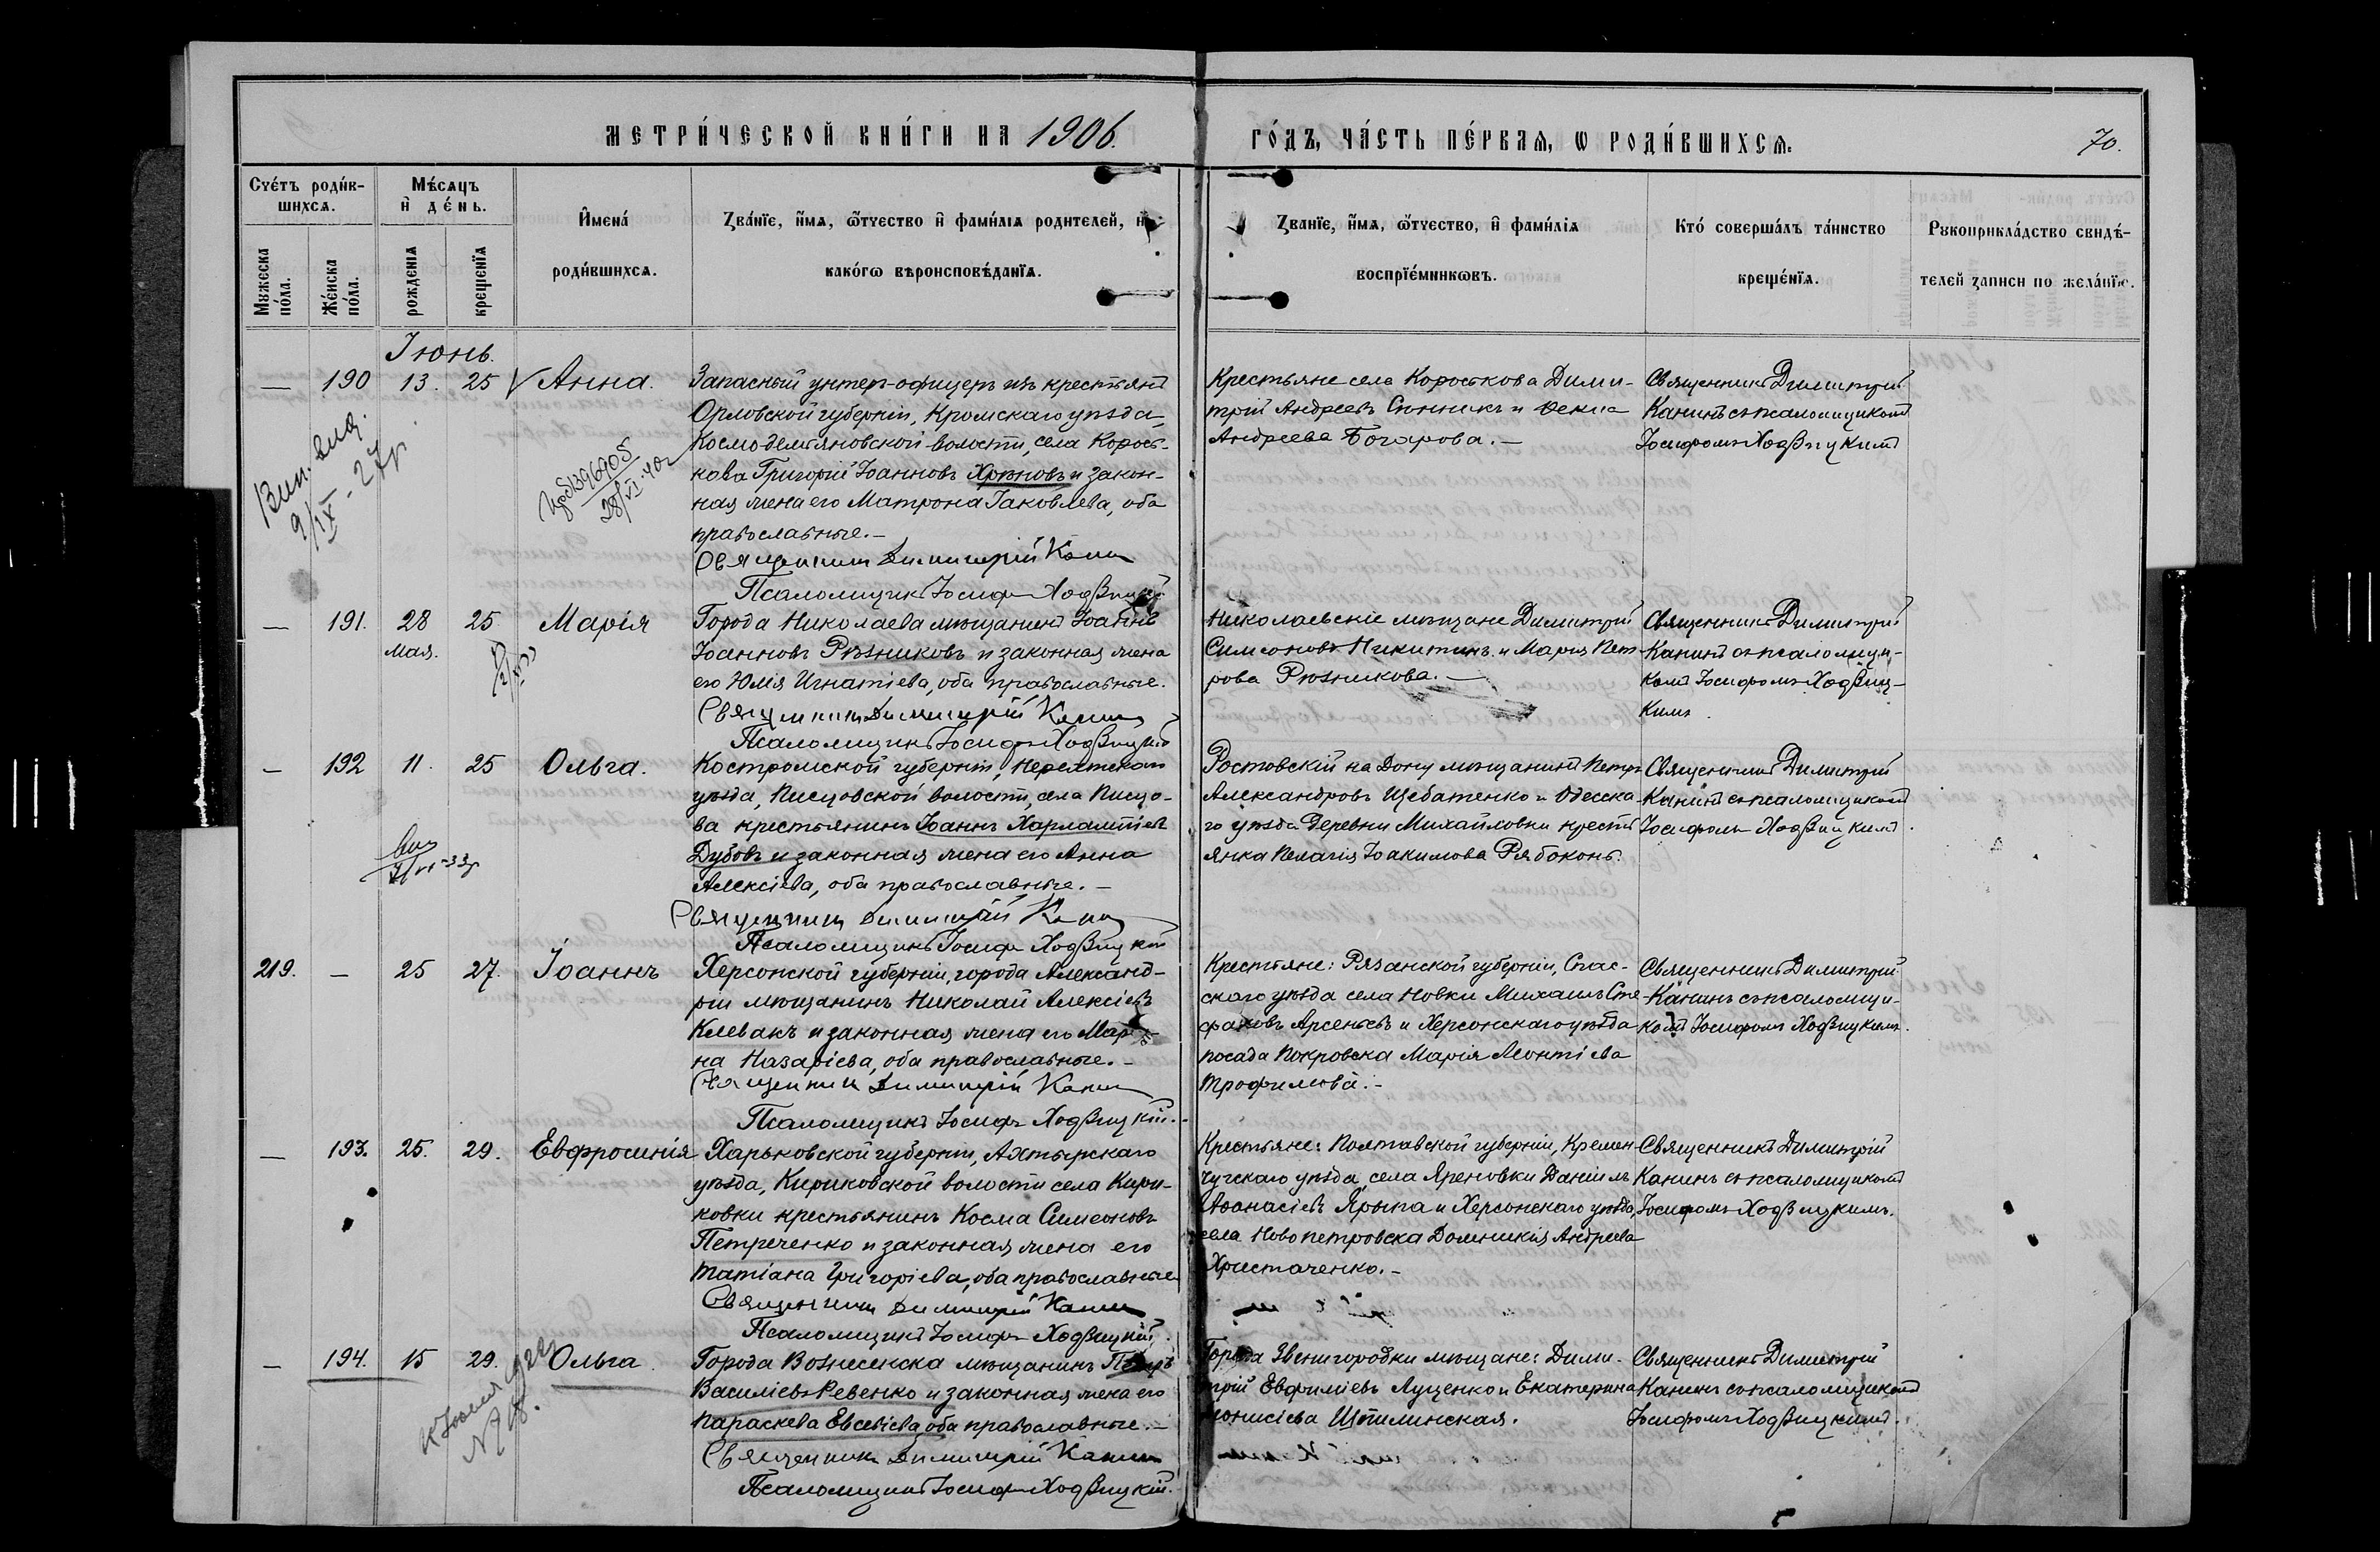 МЕТРИ́ЧЕСКОЙ КНИ́ГИ НА 1906.
ГО́ДЪ, ЧА́СТЬ ПЕ́РВАѦ, Ѡ РОДИ́ВШИХСѦ.
70.
Счéтъ роди́в-
шихсѧ.
Мѣ́сѧцъ
и҆ де́нь.
И҆мена́
роди́вшихсѧ.
Зва́нїе, и҆́мѧ, ѻ҆́тчество и҆ фами́лїѧ родителей, и҆
како́гѡ вѣроисповѣ́данїѧ.
Зва́нїе, и҆́мѧ, ѻ҆́тчество, и҆ фами́лїѧ
воспрїе́мникѡвъ.
Кто́ соверша́лъ та́инство
креще́нїѧ.
Рꙋкоприкла́дство свидѣ́-
телей записи по жела́нїю.
Мꙋжеска
по́ла.
Же́нска
по́ла.
рожденїѧ
крещенїѧ
Іюнь.
— 190 13. 25 Анна.
Запасный унтер-офицеръ изъ крестьянъ
Орловской губерніи, Кромскаго уѣзда,
Космодемьяновской волости, села Корост-
кова Григорій Іоанновъ Хрѣновъ и закон-
ная жена его Матрона Іаковлева, оба
православные.—
Священникъ Димитрій Канинъ
Псаломщикъ Іосифъ Ходзицкій
Крестьяне села Коросткова Дими-
трій Андреевъ и
Андреева Бочарова.—
Священникъ Димитрій
Канинъ съ псаломщикомъ
Іосифомъ Ходзицкимъ
9/IX - 27г.
28/VI-40г
— 191. 28 25 Марія
мая.
Города Николаева мѣщанинъ Іоаннъ
Іоанновъ Рѣзниковъ и законная жена
его Юлія Игнатіева, оба православные.
Священникъ Димитрій Канинъ
Псаломщикъ Іосифъ Ходзицкій
Николаевскіе мѣщане Димитрій
Симеоновъ Никитинъ и Марія Пет-
рова Рѣзникова.—
Священникъ Димитрій
Канинъ съ псаломщи-
комъ Іосифомъ Ходзиц-
кимъ.
— 192 11. 25 Ольга.
Костромской губерніи, Нерехтскаго
уѣзда, Писцовской волости, села Писцо-
ва крестьянинъ Іоаннъ Харлампіевъ
Дубовъ и законная жена его Анна
Алексіева, оба православные.—
Священникъ Димитрій Канинъ
Псаломщикъ Іосифъ Ходзицкій
Ростовскій на Дону мѣщанинъ Петръ
Александровъ Щебатенко и Одесска-
го уѣзда деревни Михайловки кресть-
янка Пелагія Іоакимова Рябоконь.
Священникъ Димитрій
Канинъ съ псаломщикомъ
Іосифомъ Ходзицкимъ.
219. — 25 27. Іоаннъ
Херсонской губерніи, города Александ-
ріи мѣщанинъ Николай Алексіевъ
Клевакъ и законная жена его Мари-
на Назаріева, оба православные.—
Священникъ Димитрій Канинъ
Псаломщикъ Іосифъ Ходзицкій.—
Крестьяне: Рязанской губерніи, Спас-
скаго уѣзда села Новки Михаилъ Сте-
фановъ Арсеньевъ и Херсонскаго уѣзда
посада Покровска Марія Леонтіева
Трофимова.—
Священникъ Димитрій
Канинъ съ псаломщи-
комъ Іосифомъ Ходзицкимъ.
— 193. 25. 29. Евфросинія
Харьковской губерніи, Ахтырскаго
уѣзда, Кириковской волости села Кири-
ковки крестьянинъ Косма Симеоновъ
Петреченко и законная жена его
Татіана Григоріева, оба православные
Священникъ Димитрій Канинъ
Псаломщикъ Іосифъ Ходзицкій.
Крестьяне: Полтавской губерніи, Кремен-
чугскаго уѣзда, села Яреновки Даніилъ
Аѳанасіевъ Ярыга и Херсонскаго уѣзда,
села Новопетровска Домникія Андреева
Христаченко.—
Священникъ Димитрій
Канинъ съ псаломщикомъ
Іосифомъ Ходзицкимъ.
— 194. 15 29. Ольга.
Города Вознесенска мѣщанинъ Петръ
Василіевъ Ревенко и законная жена его
Параскева Евсевіева, оба православные.—
Священникъ Димитрій Канинъ
Псаломщикъ Іосифъ Ходзицкій.
Города Звенигородки мѣщане: Дими-
трій Евфиміевъ Луценко и Екатерина
Діонисіева Щпилинская.
Священникъ Димитрій
Канинъ съ псаломщикомъ
Іосифомъ Ходзицкимъ.